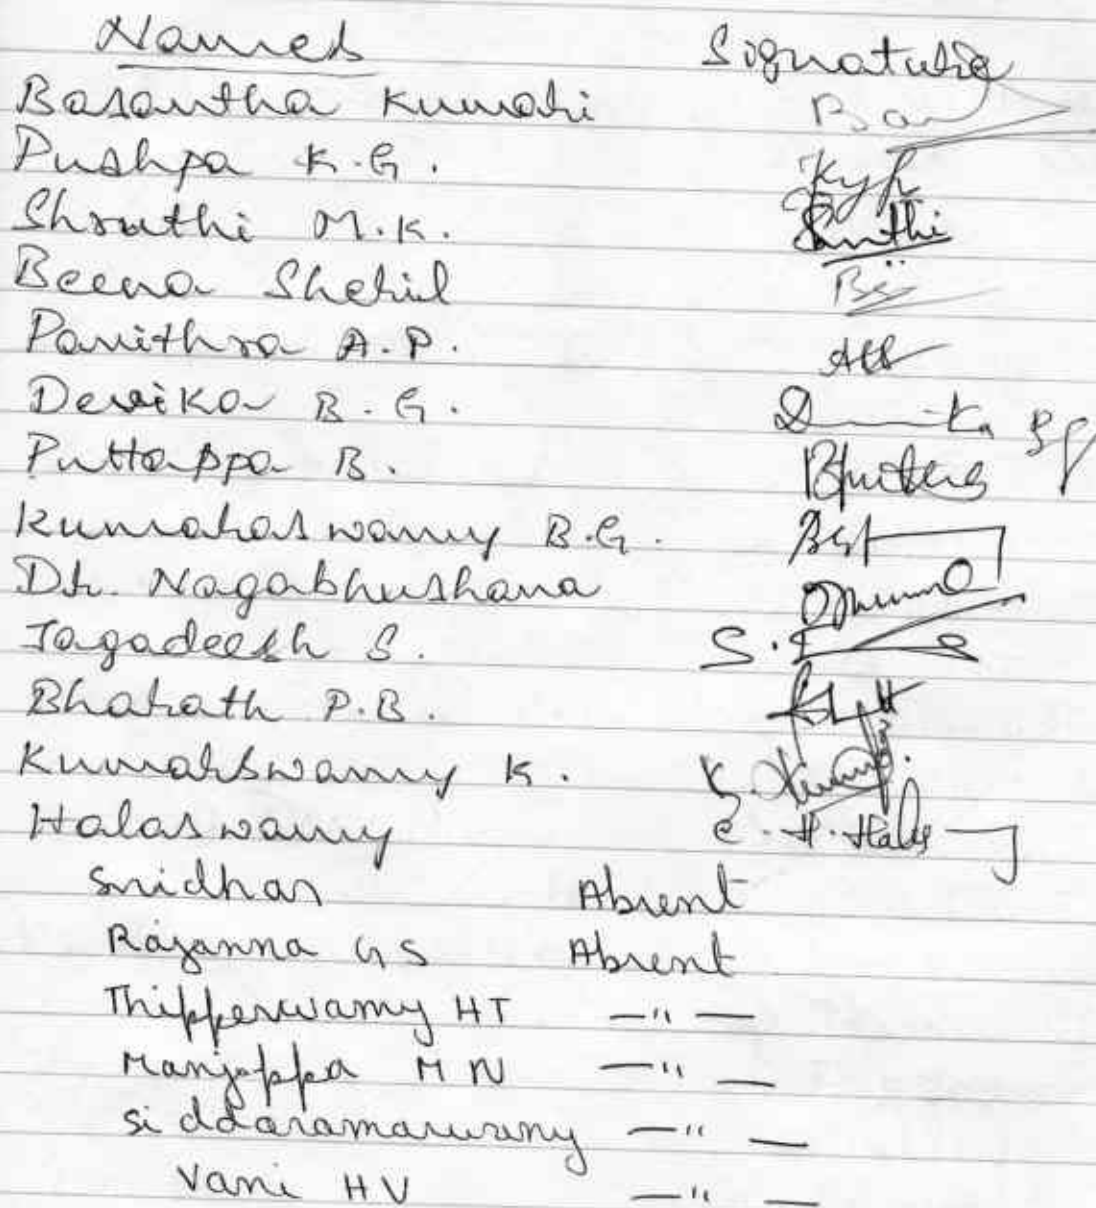 Names Signature
Basantha Kumari
Pushpa K.G.
Shruthi M.K. Shruthi
Beena Shekil
Pavithra A.P.
Devika B.G.
Puttappa B.
Kumaraswamy B.G.
Dr. Nagabhushana
Jagadeesh S.
Bharath P.B.
Kumarswamy K.
Halaswamy
Sridhar Absent
Rajanna G S Absent
Thipperwamy HT —"—
Manjappa M N —"—
Siddaramaswamy —"—
Vani HV —"—